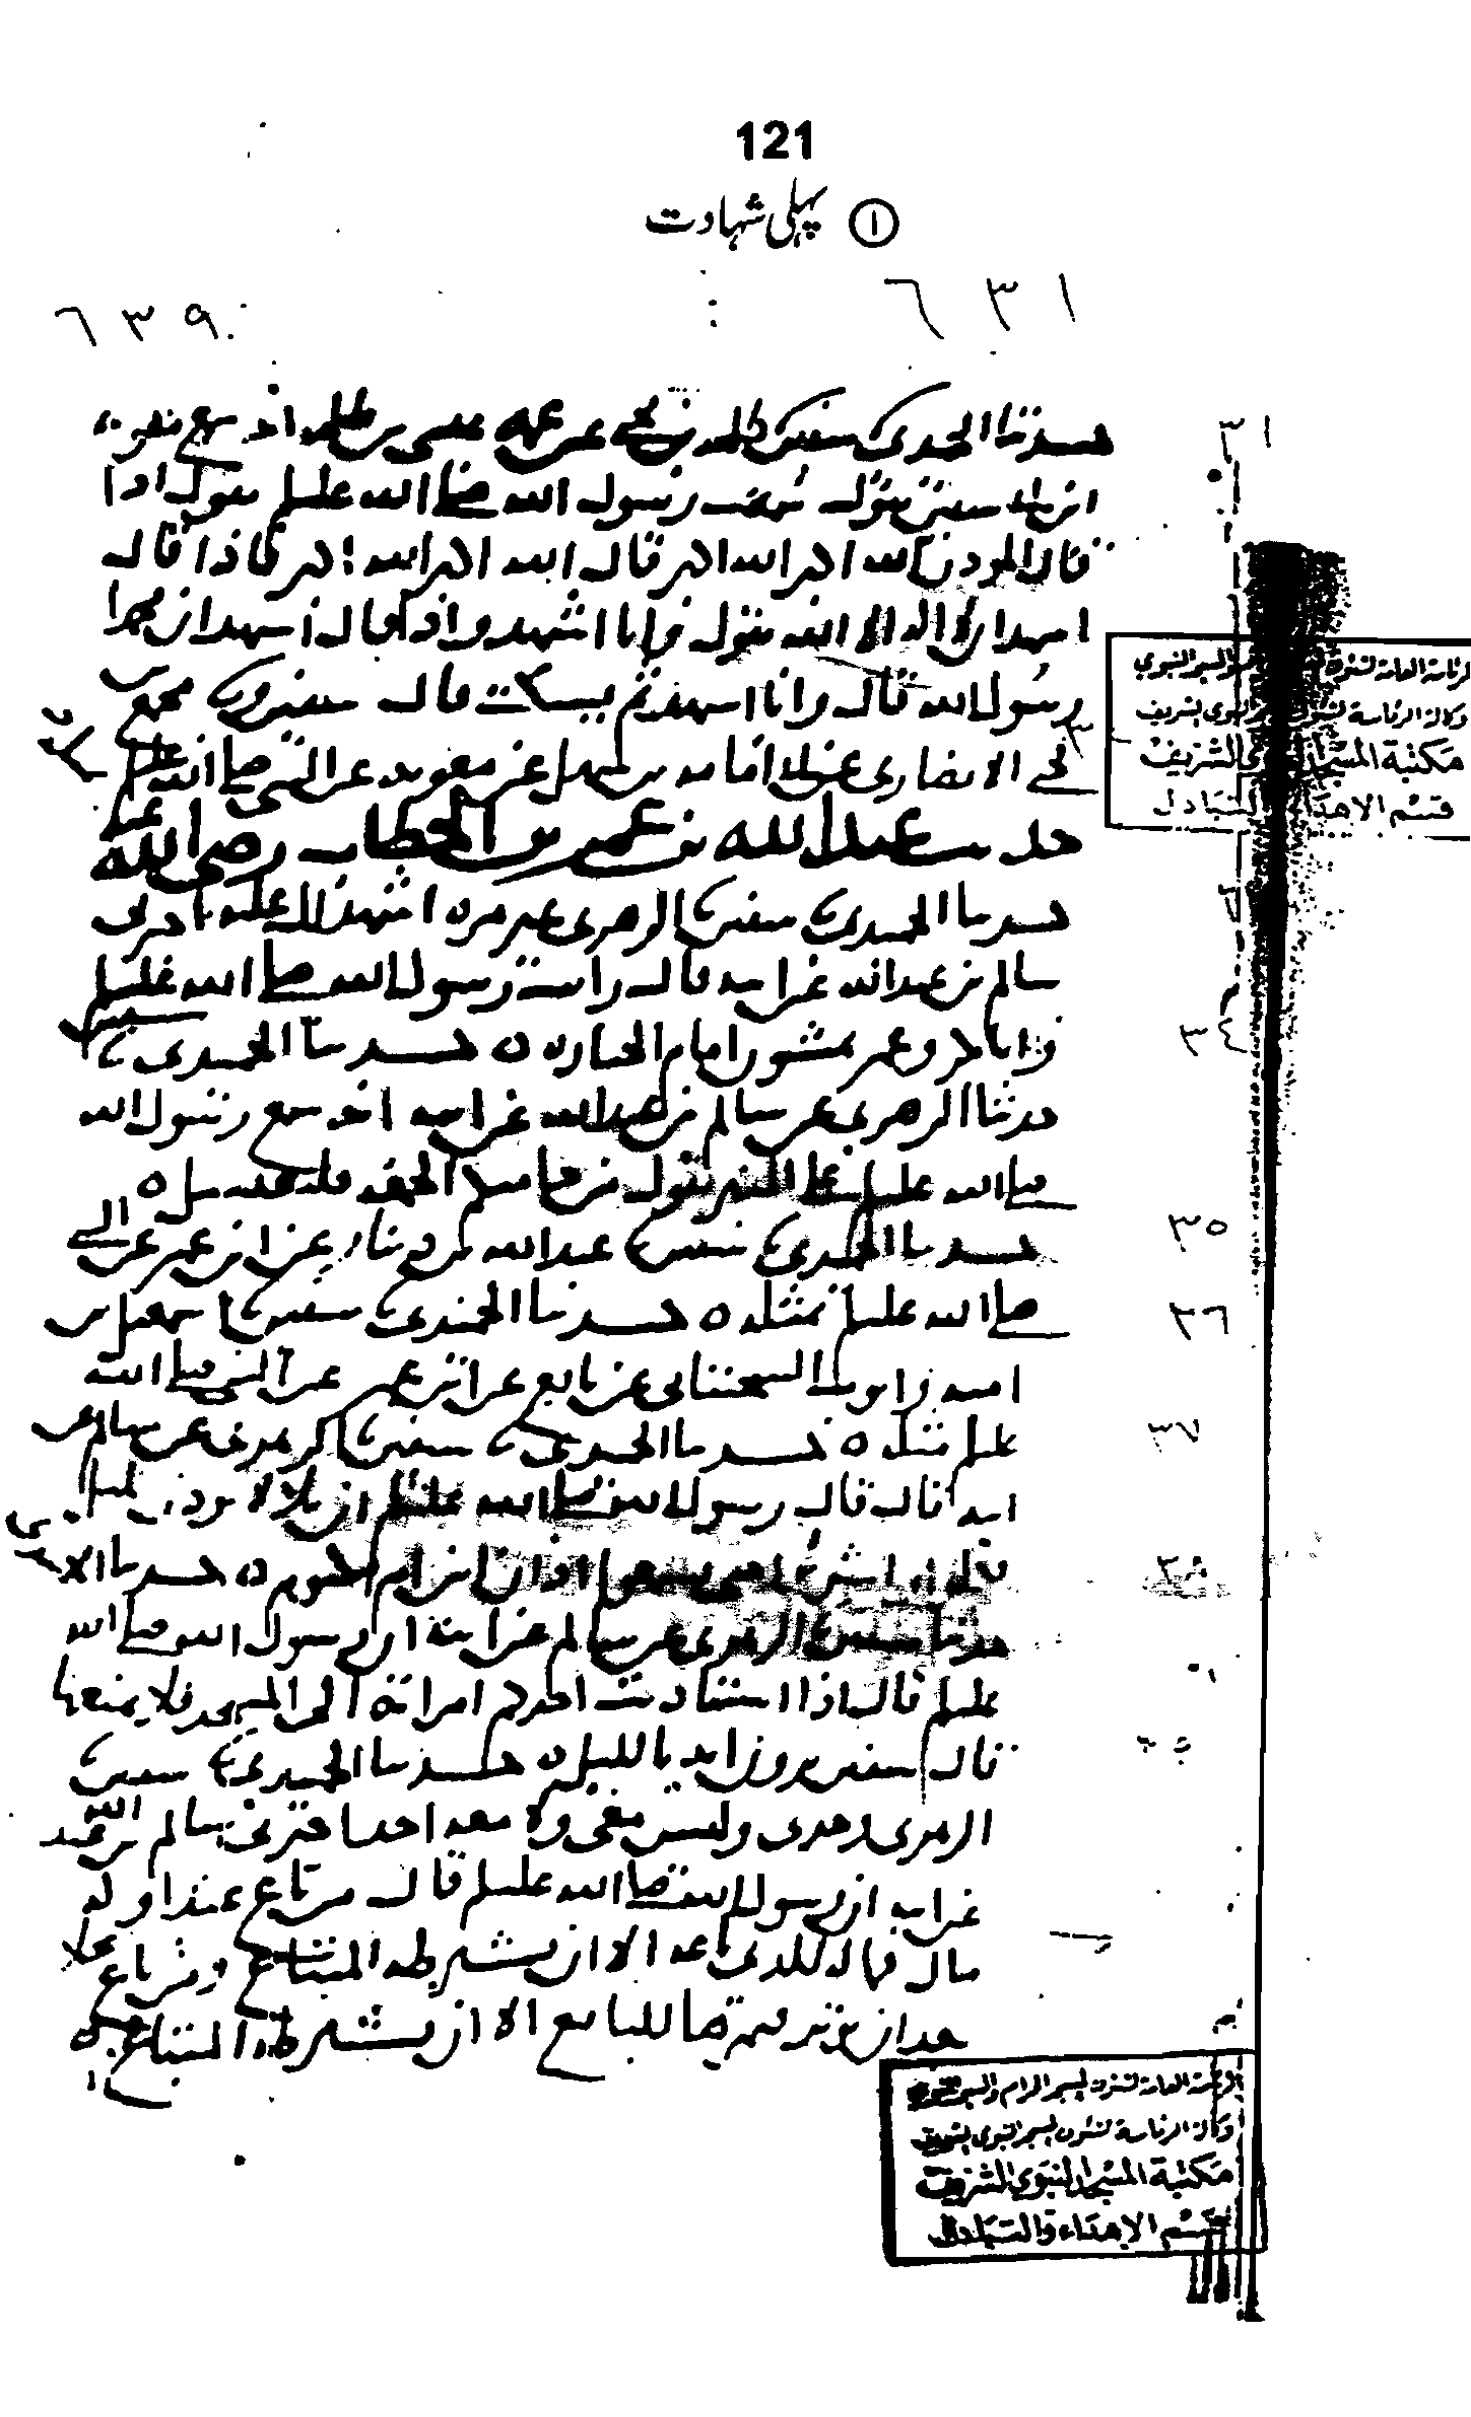 121
① پہلی شہادت
٦٣١
٦٣٩
حدثنا الحميدي سفين طلحه بن يحيى عن عمه عيسى بن طلحه انه سمع معويه
ابن ابي سفين يقول سمعت رسول الله صلى الله عليه وسلم يقول اذا
قال المؤذن الله اكبر الله اكبر قال الله اكبر الله اكبر فاذا قال
اشهد ان لا اله الا الله يقول وانا اشهد واذا قال اشهد ان محمدا
رسول الله قال وانا اشهد ثم يسكت قال سفين مجمع
الانصاري عن ابي امامه بن سهل عن معويه عن النبي صلى الله عليه
حديث عبد الله بن عمر بن الخطاب رضي الله عنه
حدثنا الحميدي سفين الزهري غير مره اشهد لك عليه اخبرني
سالم بن عبد الله عن ابيه قال رايت رسول الله صلى الله عليه وسلم
وابا بكر وعمر يمشون امام الجنازه ه حدثنا الحميدي سفين
حدثنا الزهري عن سالم بن عبد الله عن ابيه انه سمع رسول الله
صلى الله عليه وسلم على المنبر يقول من جا منكم الجمعه فليغتسل ه
حدثنا الحميدي سفين عبد الله بن دينار عن ابن عمر عن النبي
صلى الله عليه وسلم بمثله ه حدثنا الحميدي سفين اسمعيل بن
اميه وايوب السختياني عن نافع عن ابن عمر عن النبي صلى الله
عليه وسلم مثله ه حدثنا الحميدي سفين الزهري عن سالم عن
ابيه قال قال رسول الله صلى الله عليه وسلم ان بلالا يؤذن بليل
فكلوا واشربوا حتى تسمعوا اذان ابن ام مكتوم ه حدثنا الحميدي
حدثنا سفين الزهري عن سالم عن ابيه ان رسول الله صلى الله
عليه وسلم قال اذا استاذنت احدكم امراته الى المسجد فلا يمنعها
قال سفين يرون انه بالليل ه حدثنا الحميدي سفين
الزهري وحدي وليس معي ولا معه احد اخبرني سالم بن عبد الله
عن ابيه ان رسول الله صلى الله عليه وسلم قال من باع عبدا وله
مال فماله للذي باعه الا ان يشترطه المبتاع ومن باع نخلا
بعد ان تؤبر فثمرتها للبايع الا ان يشترطه المبتاع ه
٣١
٣٤
٣٥
٣٦
٣٧
٣٨
مكتبة المسجد النبوي الشريف
قسم الاهداء والتبادل
الرئاسة العامة لشئون المسجد الحرام والمسجد النبوي
وكالة الرئاسة لشئون المسجد النبوي الشريف
مكتبة المسجد النبوي الشريف
قسم الاهداء والتبادل